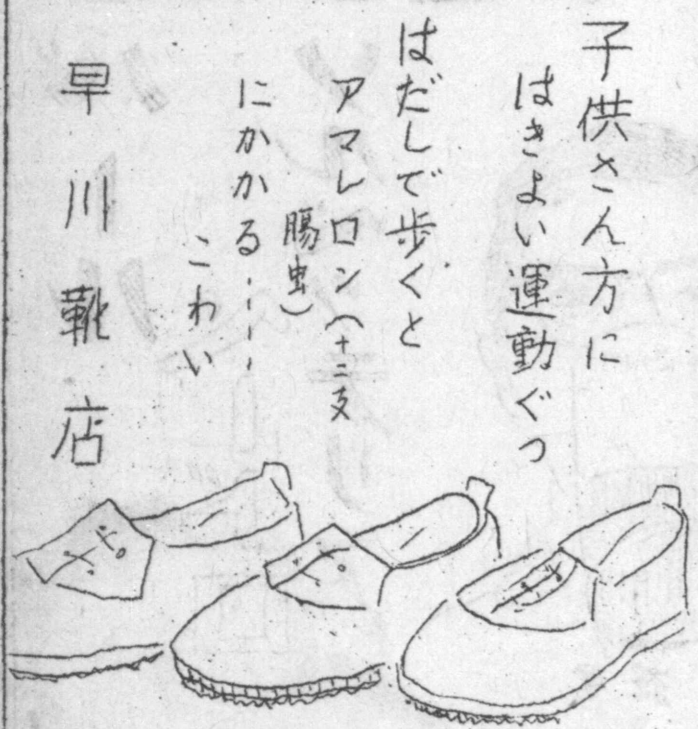 子供さん方に
はきよい運動ぐつ
はだしで歩くと
アマレロン(十二支
腸虫)
にかかる……
こわい
早川靴店